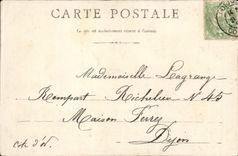 CARTE POSTALE
Ce côté est exclusivement réservé à l'adresse
Mademoiselle Lagrange
Rempart Richelieu N 45
Maison Ferrey
Dijon
Cote d'Or